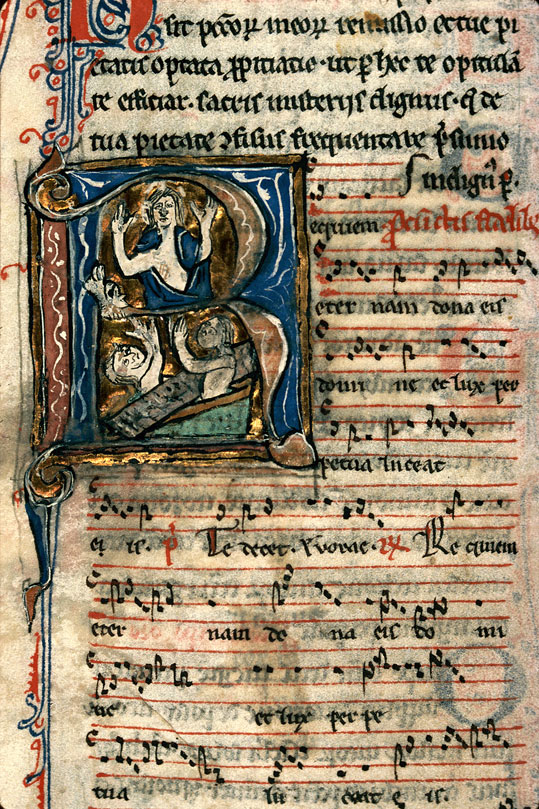 sit pcc̄oꝝ meoꝝ remissio et tue pi
etatis optata ꝓpitiatio · ut ꝑ hec te opitulā
te efficiar · sacris misterijs dignus · q̄ de
tua pietate ↄfisus frequentare p̄sumo
indignꝰ · ꝑ ·
equiem
eter nam dona eis
domi ne et lux per
petua luceat
e is. Te decet · Re quiem
eter nam do na eis do mi
ne et lux per pe
tua lu ceat e is.